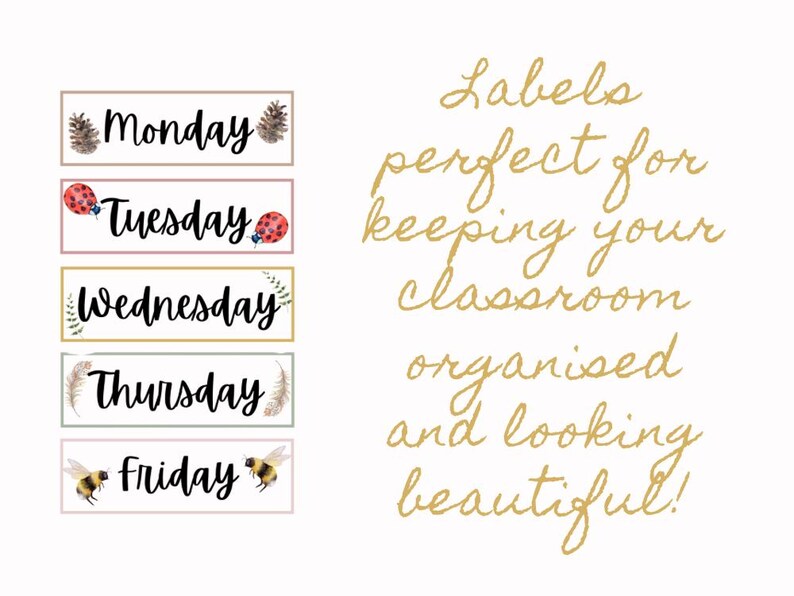 Monday
Tuesday
Wednesday
Thursday
Friday
Labels
perfect for
keeping your
classroom
organised
and looking
beautiful!